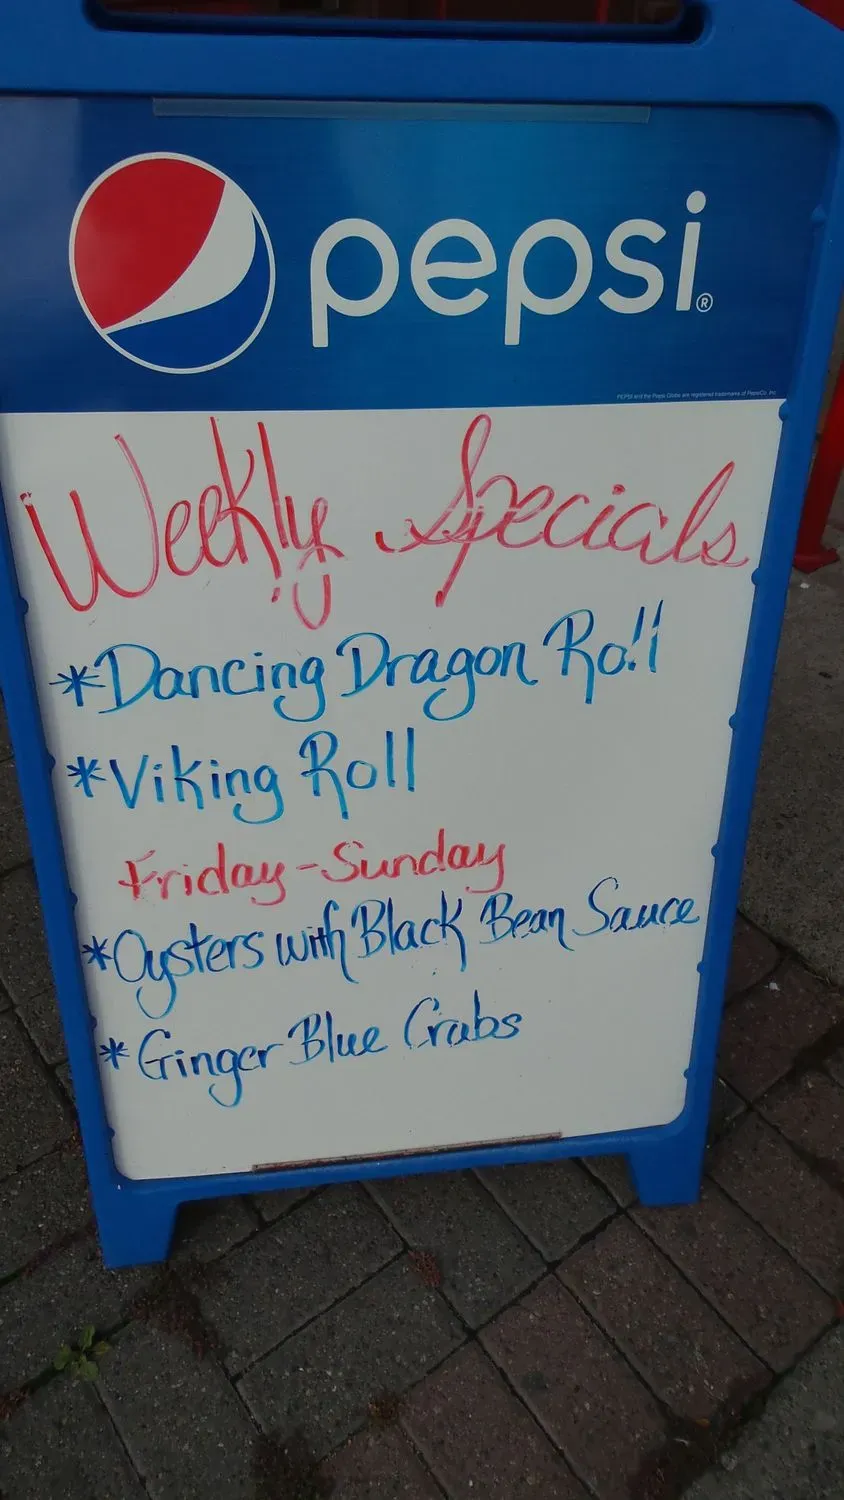 pepsi®
PEPSI and the Pepsi Globe are registered trademarks of PepsiCo, Inc.
Weekly Specials
*Dancing Dragon Roll
*Viking Roll
Friday-Sunday
*Oysters with Black Bean Sauce
*Ginger Blue Crabs